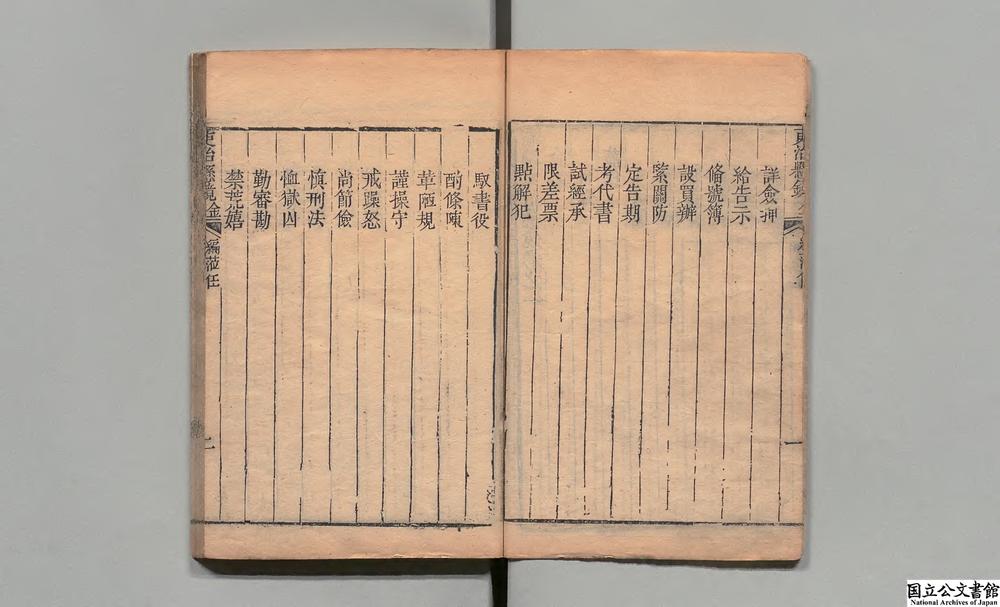 詳僉押
給告示
脩號簿
設買辦
緊關防
定告期
考代書
試經承
限差票
點解犯
一
馭書役
酌條陳
革陋規
謹操守
戒躁怒
尚節儉
慎刑法
恤獄囚
勤審勘
禁荒嬉
吏治懸鏡 編蒞任
二
国立公文書館
National Archives of Japan